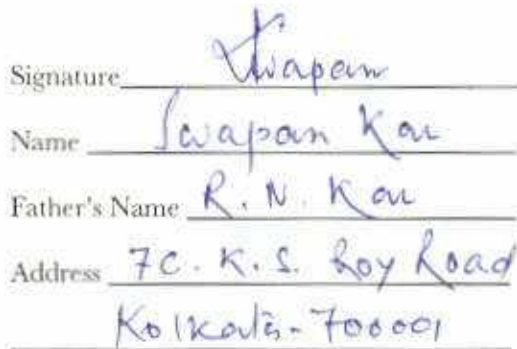 Signature Swapan
Name Swapan Kar
Father's Name R. N. Kar
Address 7C. K. S. Roy Road
Kolkata - 700001